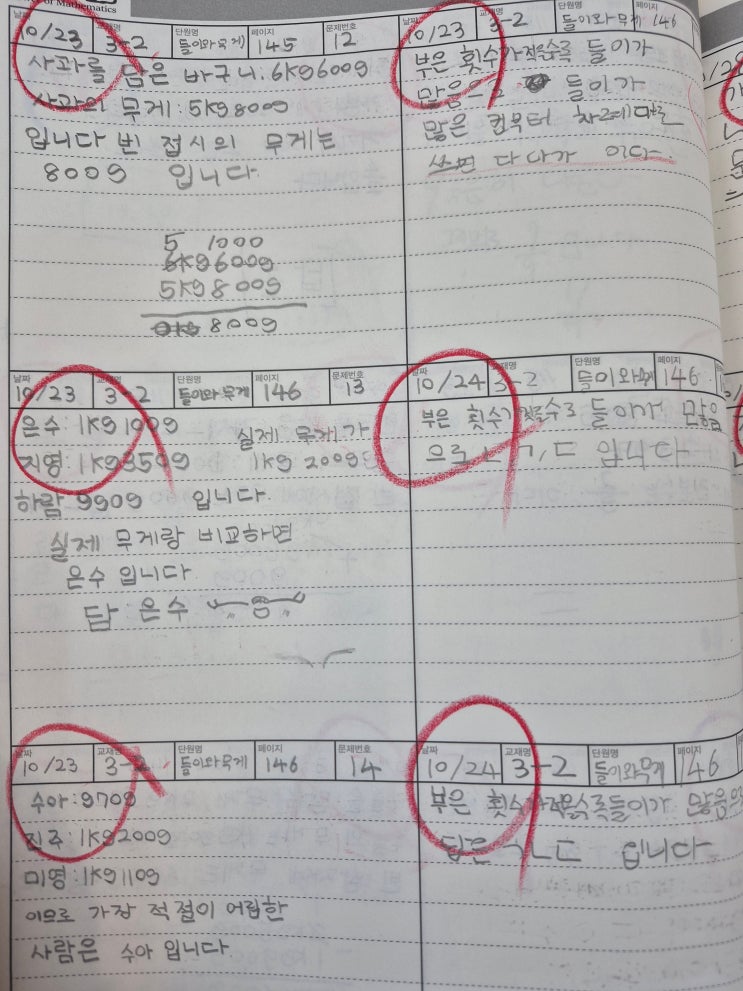 of Mathematics
날짜 10/23 교재명 3-2 단원명 들이와 무게 페이지 145 문제번호 12
사과를 담은 바구니:6kg600g
사과의 무게:5kg800g
입니다 빈 접시의 무게는
800g 입니다
5 1000
6kg600g
5kg800g
800g
날짜 10/23 교재명 3-2 단원명 들이와무게 페이지 146 문제번호 13
은수:1kg100g 실제 무게가
지영:1kg350g 1kg 200g
하람 990g 입니다
실제 무게랑 비교하면
은수 입니다
답 은수
날짜 10/23 교재명 3-2 단원명 들이와무게 페이지 146 문제번호 14
수아:970g
진주:1kg200g
미영:1kg110g
이므로 가장 적절이 어림한
사람은 수아 입니다
날짜 10/23 교재명 3-2 단원명 들이와 무게 페이지 146
부은 횟수가적을수록 들이가
많음 들이가
많은 컵부터 차례대로
쓰면 다 나가 이다.
날짜 10/24 교재명 3-2 단원명 들이와무게 페이지 146
부은 횟수가 적을수록 들이가 많음
으로 ㄴ,ㄱ,ㄷ 입니다
날짜 10/24 교재명 3-2 단원명 들이와무게 페이지 146
부은 횟수가적을수록들이가 많음
답은 ㄱㄴㄷ 입니다